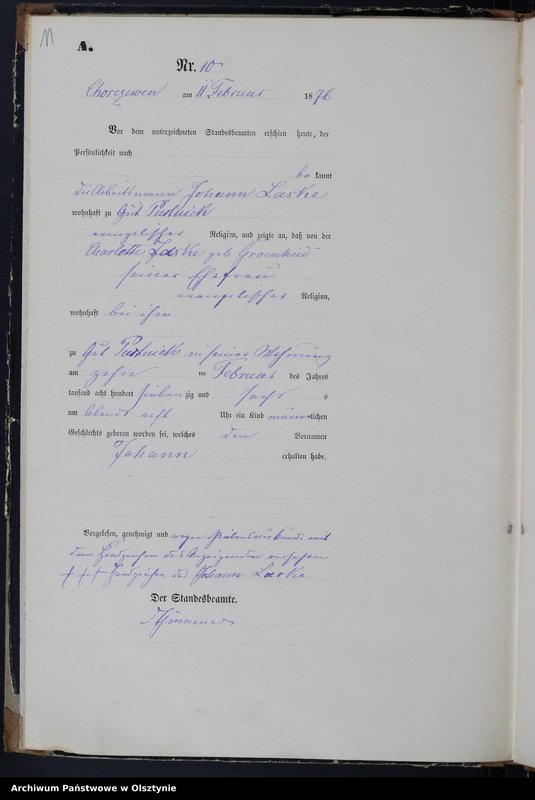 11
A.
Nr. 10
Chorczewen am 11 Februar 1876
Vor dem unterzeichneten Standesbeamten erschien heute, der
Persönlichkeit nach
be kannt
der Arbeitsmann Johann Laske
wohnhaft zu Gut
evangelischer Religion, und zeigte an, daß von der
Charlotte Laske geb
seiner Ehefrau
evangelischer Religion,
wohnhaft bei ihm
zu Gut in seiner Wohnung
am zehn ten Februar des Jahres
tausend acht hundert sieben zig und sechs
um Abends acht Uhr ein Kind männlichen
Geschlechts geboren worden sei, welches den Vornamen
Johann erhalten habe.
Vorgelesen, genehmigt und wegen mit
dem Handzeichen des Anzeigenden versehen
+++ Handzeichen des Johann Laske
Der Standesbeamte.
Archiwum Państwowe w Olsztynie